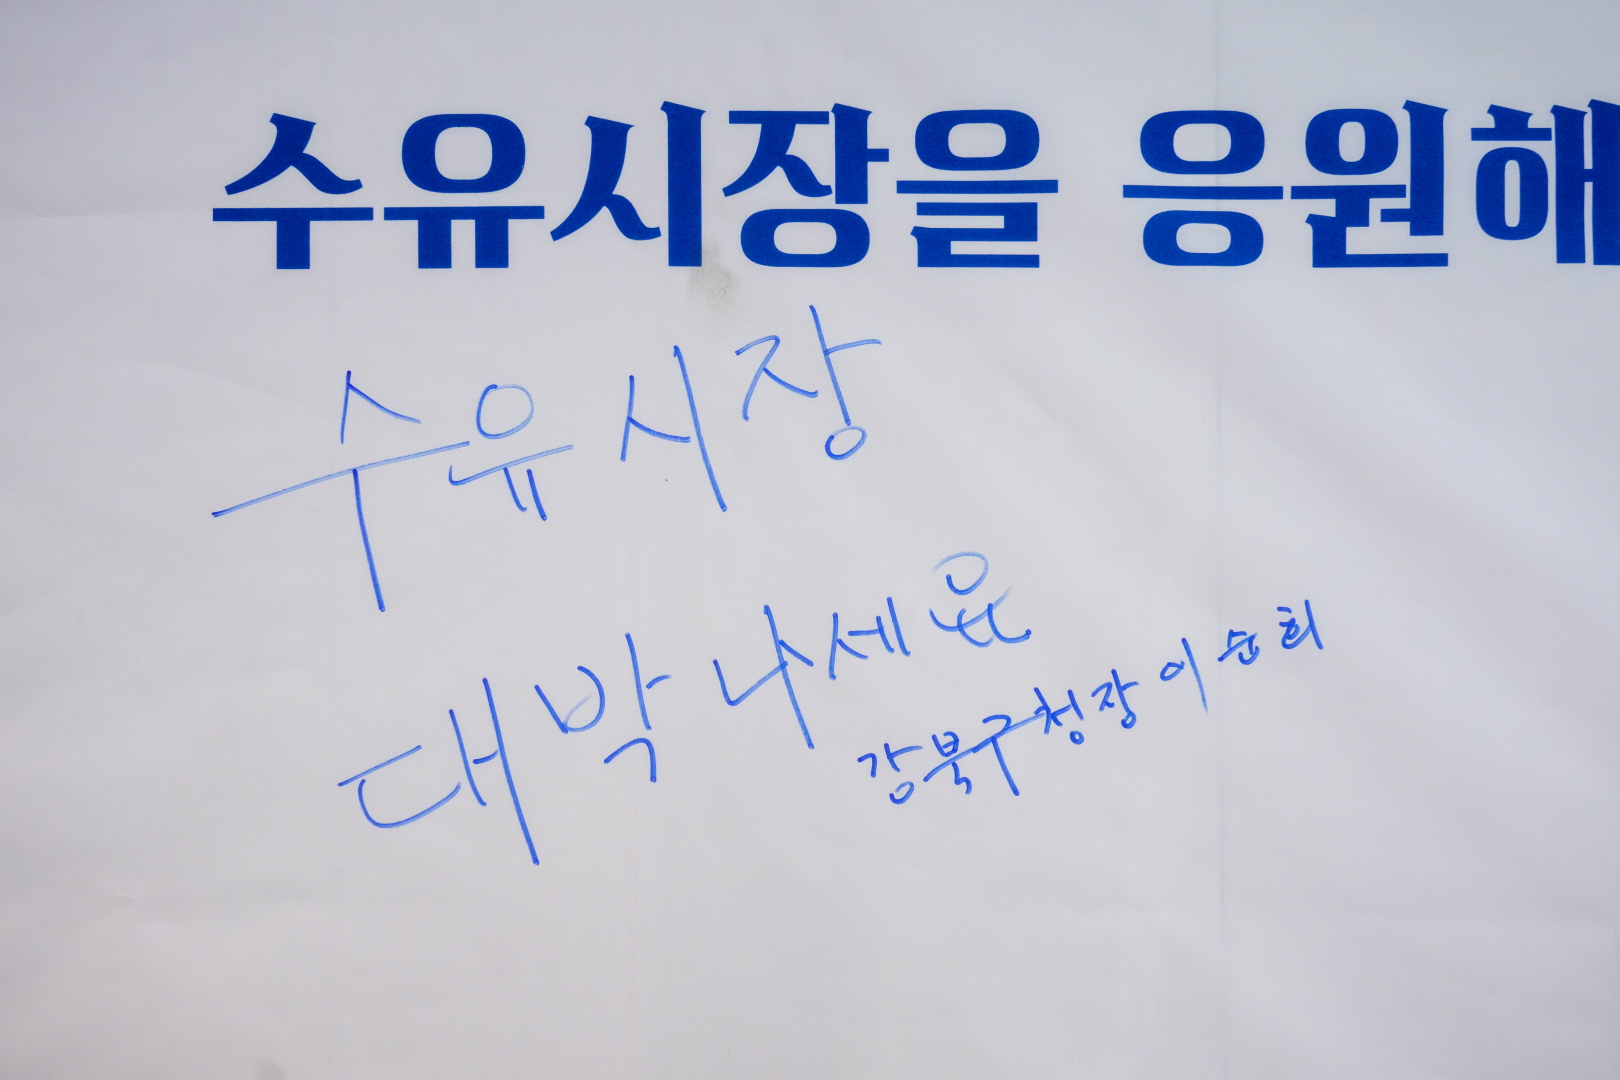 수유시장을 응원해
수유시장
대박나세요
강북구청장 이순희